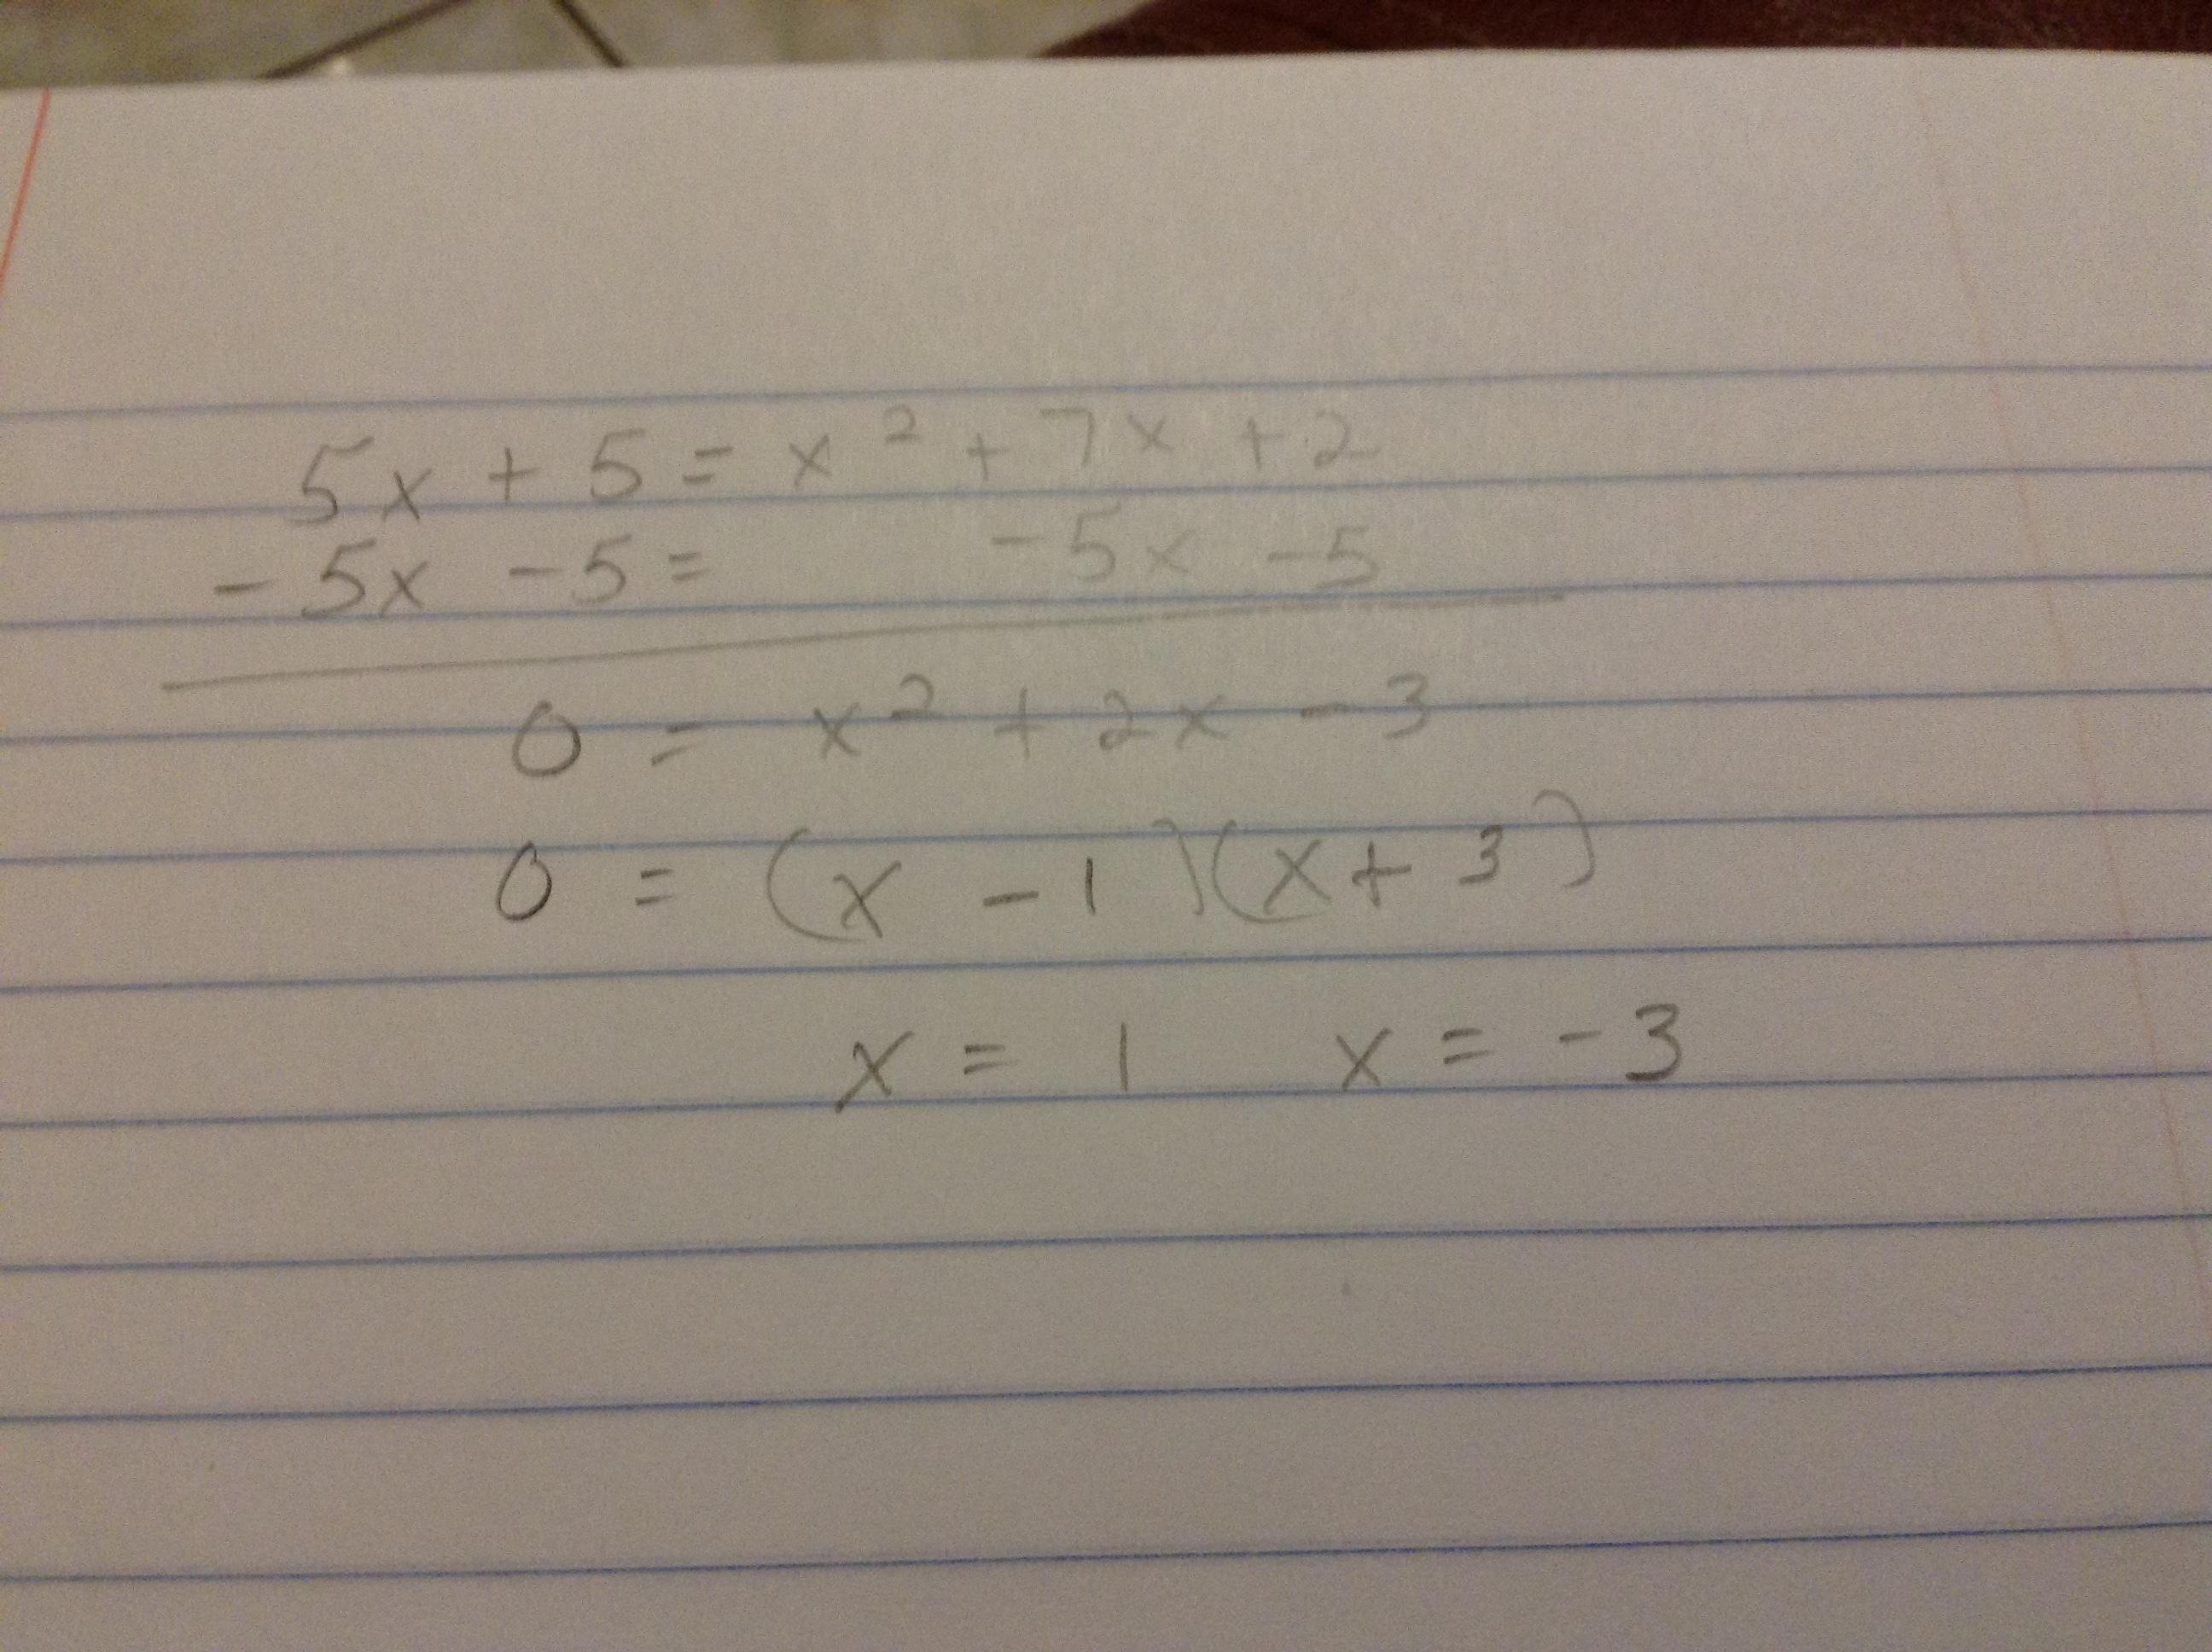 5x + 5 = x² + 7x + 2
- 5x - 5 = - 5x - 5
0 = x² + 2x - 3
0 = (x - 1)(x + 3)
x = 1 x = - 3